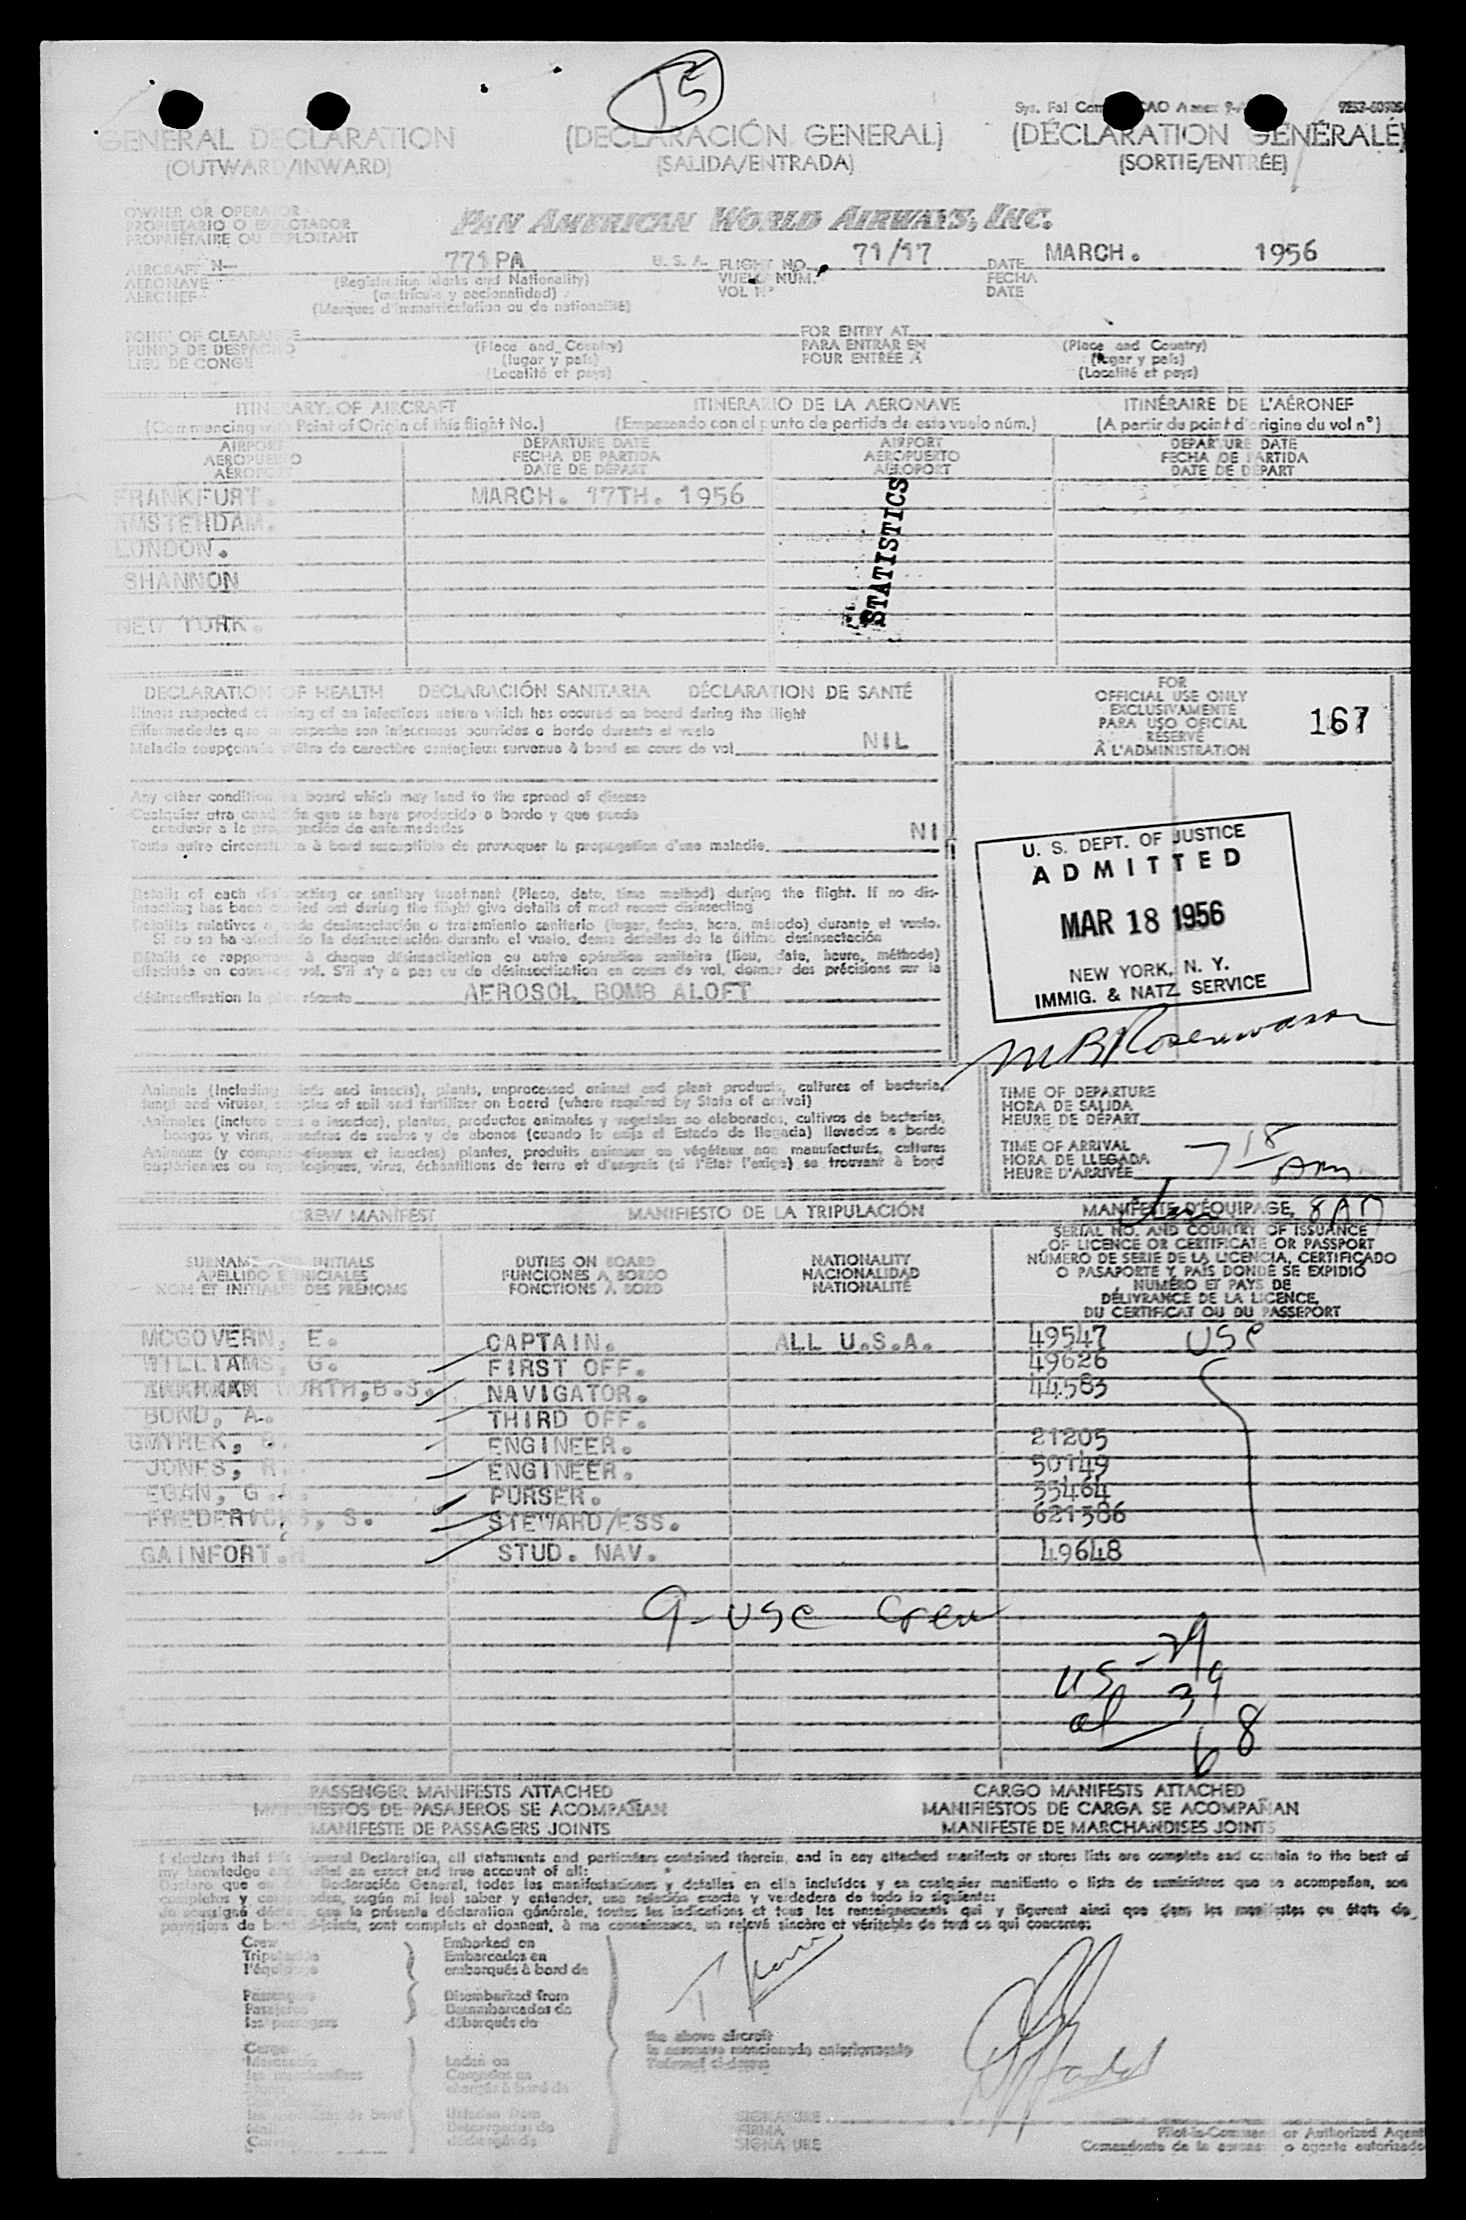 15
Sys. Fal Com
GENERAL DECLARATION (DECLARACIÓN GENERAL) (DÉCLARATION GÉNÉRALE)
(OUTWARD/INWARD) (SALIDA/ENTRADA) (SORTIE/ENTRÉE)
OWNER OR OPERATOR
PROPIETARIO O EXPLOTADOR
PROPRIÉTAIRE OU EXPLOITANT
PAN AMERICAN WORLD AIRWAYS, INC.
AIRCRAFT N- 771PA U. S. A. FLIGHT NO. 71/17 DATE MARCH. 1956
AERONAVE (Registration Marks and Nationality) VUELO NÚM. FECHA
AÉRONEF (matrícula y nacionalidad) VOL Nº DATE
(Marques d'immatriculation ou de nationalité)
POINT OF CLEARANCE FOR ENTRY AT
PUNTO DE DESPACHO (Place and Country) PARA ENTRAR EN (Place and Country)
LIEU DE CONGÉ (lugar y país) POUR ENTRÉE À (lugar y país)
(Localité et pays) (Localité et pays)
ITINERARY OF AIRCRAFT ITINERARIO DE LA AERONAVE ITINÉRAIRE DE L'AÉRONEF
(Commencing with Point of Origin of this flight No.) (Empezando con el punto de partida de este vuelo núm.) (A partir du point d'origine du vol nº)
AIRPORT DEPARTURE DATE AIRPORT DEPARTURE DATE
AEROPUERTO FECHA DE PARTIDA AEROPUERTO FECHA DE PARTIDA
AÉROPORT DATE DE DÉPART AÉROPORT DATE DE DÉPART
FRANKFURT. MARCH. 17TH. 1956
AMSTERDAM.
LONDON.
SHANNON
NEW YORK.
STATISTICS
DECLARATION OF HEALTH DECLARACIÓN SANITARIA DÉCLARATION DE SANTÉ
Illness suspected of being of an infectious nature which has occured on board during the flight
Enfermedades que se sospecha son infecciosas ocurridas a bordo durante el vuelo
Maladie soupçonnée d'être de caractère contagieux survenue à bord en cours de vol NIL
FOR
OFFICIAL USE ONLY
EXCLUSIVAMENTE
PARA USO OFICIAL
RÉSERVÉ
À L'ADMINISTRATION
167
Any other condition on board which may lead to the spread of disease
Cualquier otra condición que se haya producido a bordo y que pueda
conducir a la propagación de enfermedades
Toute autre circonstance à bord susceptible de provoquer la propagation d'une maladie. NI
U. S. DEPT. OF JUSTICE
ADMITTED
MAR 18 1956
NEW YORK, N. Y.
IMMIG. & NATZ. SERVICE
Details of each disinsecting or sanitary treatment (Place, date, time method) during the flight. If no dis-
insecting has been carried out during the flight give details of most recent disinsecting
Detalles relativos a cada desinsectación o tratamiento sanitario (lugar, fecha, hora, método) durante el vuelo.
Si no se ha efectuado la desinsectación durante el vuelo, dense detalles de la última desinsectación
Détails se rapportant à chaque désinsectisation ou autre opération sanitaire (lieu, date, heure, méthode)
effectuée en cours de vol. S'il n'y a pas eu de désinsectisation en cours de vol, donner des précisions sur la
désinsectisation la plus récente AEROSOL BOMB ALOFT
Animals (including birds and insects), plants, unprocessed animal and plant products, cultures of bacteria,
fungi and viruses, samples of soil and fertilizer on board (where required by State of arrival)
Animales (incluso aves e insectos), plantas, productos animales y vegetales no elaborados, cultivos de bacterias,
hongos y virus, muestras de suelos y de abonos (cuando lo exija el Estado de llegada) llevados a bordo
Animaux (y compris oiseaux et insectes) plantes, produits animaux ou végétaux non manufacturés, cultures
bactériennes ou mycologiques, virus, échantillons de terre et d'engrais (si l'État l'exige) se trouvant à bord
TIME OF DEPARTURE
HORA DE SALIDA
HEURE DE DÉPART
TIME OF ARRIVAL 7 18
HORA DE LLEGADA
HEURE D'ARRIVÉE Am
CREW MANIFEST MANIFIESTO DE LA TRIPULACIÓN MANIFESTE D'ÉQUIPAGE
SURNAME AND INITIALS DUTIES ON BOARD NATIONALITY
APELLIDO E INICIALES FUNCIONES A BORDO NACIONALIDAD
NOM ET INITIALES DES PRÉNOMS FONCTIONS À BORD NATIONALITÉ
SERIAL NO. AND COUNTRY OF ISSUANCE
OF LICENCE OR CERTIFICATE OR PASSPORT
NÚMERO DE SERIE DE LA LICENCIA, CERTIFICADO
O PASAPORTE Y PAÍS DONDE SE EXPIDIÓ
NUMÉRO ET PAYS DE
DÉLIVRANCE DE LA LICENCE,
DU CERTIFICAT OU DU PASSEPORT
MCGOVERN, E. CAPTAIN. ALL U.S.A. 49547 USC
WILLIAMS, G. FIRST OFF. 49626
NAVIGATOR. 44583
BOND, A. THIRD OFF.
ENGINEER. 21205
JONES, R. ENGINEER. 50149
EGAN, G. PURSER. 35464
FREDERICKS, S. STEWARD/ESS. 621386
GAINFORT. STUD. NAV. 49648
9- USC Crew
US - 29 9
al 3
6 8
PASSENGER MANIFESTS ATTACHED CARGO MANIFESTS ATTACHED
MANIFIESTOS DE PASAJEROS SE ACOMPAÑAN MANIFIESTOS DE CARGA SE ACOMPAÑAN
MANIFESTE DE PASSAGERS JOINTS MANIFESTE DE MARCHANDISES JOINTS
I declare that this General Declaration, all statements and particulars contained therein, and in any attached manifests or stores lists are complete and contain to the best of
my knowledge and belief an exact and true account of all:
Declaro que en esta Declaración General, todas las manifestaciones y detalles en ella incluidos y en cualquier manifiesto o lista de suministros que se acompañan, son
completos y comprenden, según mi leal saber y entender, una relación exacta y verdadera de todo lo siguiente:
Je soussigné déclare que la présente déclaration générale, toutes les indications et tous les renseignements qui y figurent ainsi que dans les manifestes ou états de
provisions de bord ci-joints, sont complets et donnent, à ma connaissance, un relevé sincère et véritable de tout ce qui concerne:
Crew Embarked on
Tripulación Embarcados en
l'équipage embarqués à bord de
Passengers Disembarked from
Pasajeros Desembarcados de
les passagers débarqués de
the above aircraft
la aeronave mencionada anteriormente
Cargo
Mercancía Laden on
les marchandises Cargados en
SIGNATURE
FIRMA Pilot-in-Command or Authorized Agent
SIGNATURE Comandante de la aeronave o agente autorizado